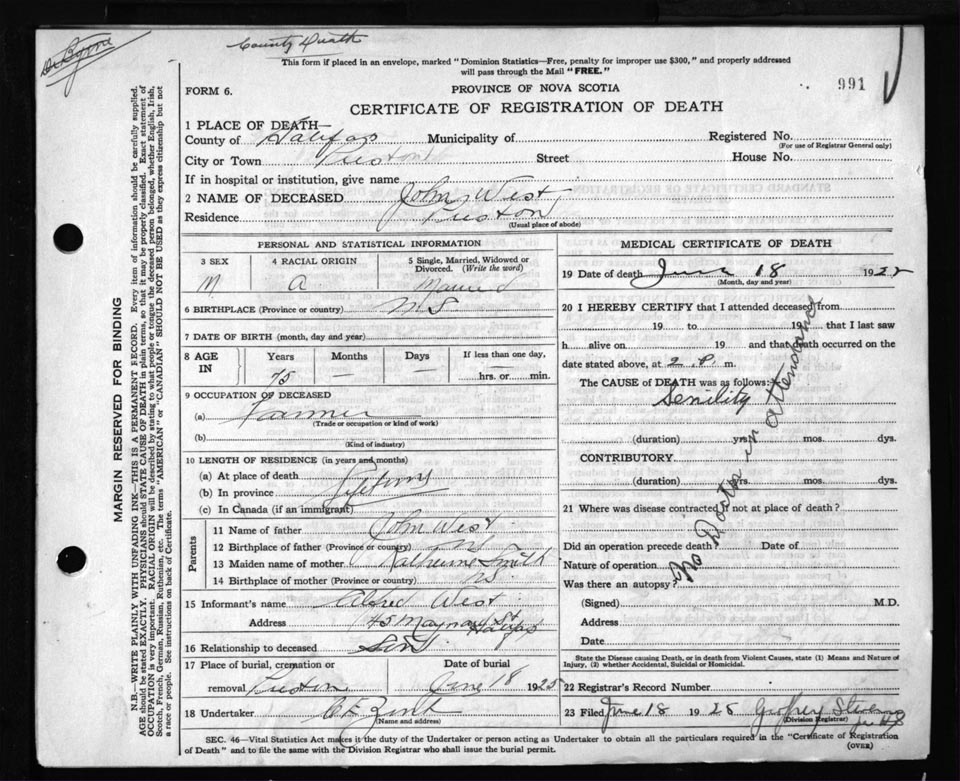 Dr Byrne
County Death
This form if placed in an envelope, marked "Dominion Statistics—Free, penalty for improper use $300," and properly addressed
will pass through the Mail "FREE."
991
FORM 6.
PROVINCE OF NOVA SCOTIA
CERTIFICATE OF REGISTRATION OF DEATH
1 PLACE OF DEATH—
County of Halifax Municipality of Registered No.
(For use of Registrar General only)
City or Town Preston Street House No.
If in hospital or institution, give name
2 NAME OF DECEASED John West
Residence Preston
(Usual place of abode)
PERSONAL AND STATISTICAL INFORMATION
3 SEX 4 RACIAL ORIGIN 5 Single, Married, Widowed or Divorced. (Write the word)
M A Married
6 BIRTHPLACE (Province or country) NS
7 DATE OF BIRTH (month, day and year)
8 AGE IN Years Months Days If less than one day,
75 — — hrs. or min.
9 OCCUPATION OF DECEASED
(a) Farmer
(Trade or occupation or kind of work)
(b)
(Kind of industry)
10 LENGTH OF RESIDENCE (in years and months)
(a) At place of death
(b) In province Lifetime
(c) In Canada (if an immigrant)
Parents
11 Name of father John West
12 Birthplace of father (Province or country) NS
13 Maiden name of mother Katherine Smith
14 Birthplace of mother (Province or country) NS
15 Informant's name West
Address 45 Maynard St Halifax
16 Relationship to deceased Son
17 Place of burial, cremation or removal Preston Date of burial June 18 1925
18 Undertaker
(Name and address)
MEDICAL CERTIFICATE OF DEATH
19 Date of death June 18 192
(Month, day and year)
20 I HEREBY CERTIFY that I attended deceased from
19 to 19 that I last saw
h alive on 19 and that death occurred on
date stated above, at 2.P. m.
The CAUSE of DEATH was as follows:
Senility
(duration) yrs. mos. dys.
CONTRIBUTORY
(duration) yrs. mos. dys.
No Doctor in attendance
21 Where was disease contracted if not at place of death?
Did an operation precede death? Date of
Nature of operation
Was there an autopsy?
(Signed) M.D.
Address
Date
State the Disease causing Death, or in death from Violent Causes, state (1) Means and Nature of
Injury, (2) whether Accidental, Suicidal or Homicidal.
22 Registrar's Record Number
23 Filed June 18 1925
(Division Registrar)
SEC. 46—Vital Statistics Act makes it the duty of the Undertaker or person acting as Undertaker to obtain all the particulars required in the "Certificate of Registration
of Death" and to file the same with the Division Registrar who shall issue the burial permit.
(OVER)
MARGIN RESERVED FOR BINDING
N.B.—WRITE PLAINLY WITH UNFADING INK—THIS IS A PERMANENT RECORD. Every item of information should be carefully supplied.
AGE should be stated EXACTLY. PHYSICIANS should STATE CAUSE OF DEATH in plain terms, so that it may be properly classified. Exact statement of
OCCUPATION is very important. RACIAL ORIGIN will be described by stating to what people or tongue the deceased person belonged, whether English, Irish,
Scotch, French, German, Russian, Ruthenian, etc. The terms "AMERICAN" or "CANADIAN" SHOULD NOT BE USED as they express citizenship but not
a race or people. See instructions on back of Certificate.